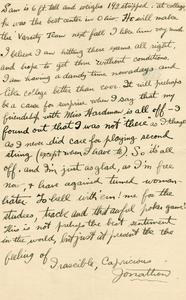 Sam is 6 ft tall and weighs 198 stripped. at college
he was the best center in Ohio. He will make
the Varsity Team next fall. I like him very much
I believe I am hitting these exams all right,
and hope to get thru without conditions.
I am having a dandy time nowadays, and
like college better than ever. It will perhaps
be a case for surprise when I say that my
friendship with Miss Hardman is all off - I
found out that I was not there as I thought
as I never did care for playing second
string (except when I have to). So it's all
off. and I'm just as glad, as I'm free
now, I have again turned woman-
hater. To hell with 'em! me for the
studies, track and that awful joke game!
This is not perhaps the best sentiment
in the world, but just at present the the
feeling of
Irascible, Capricious
Jonathan